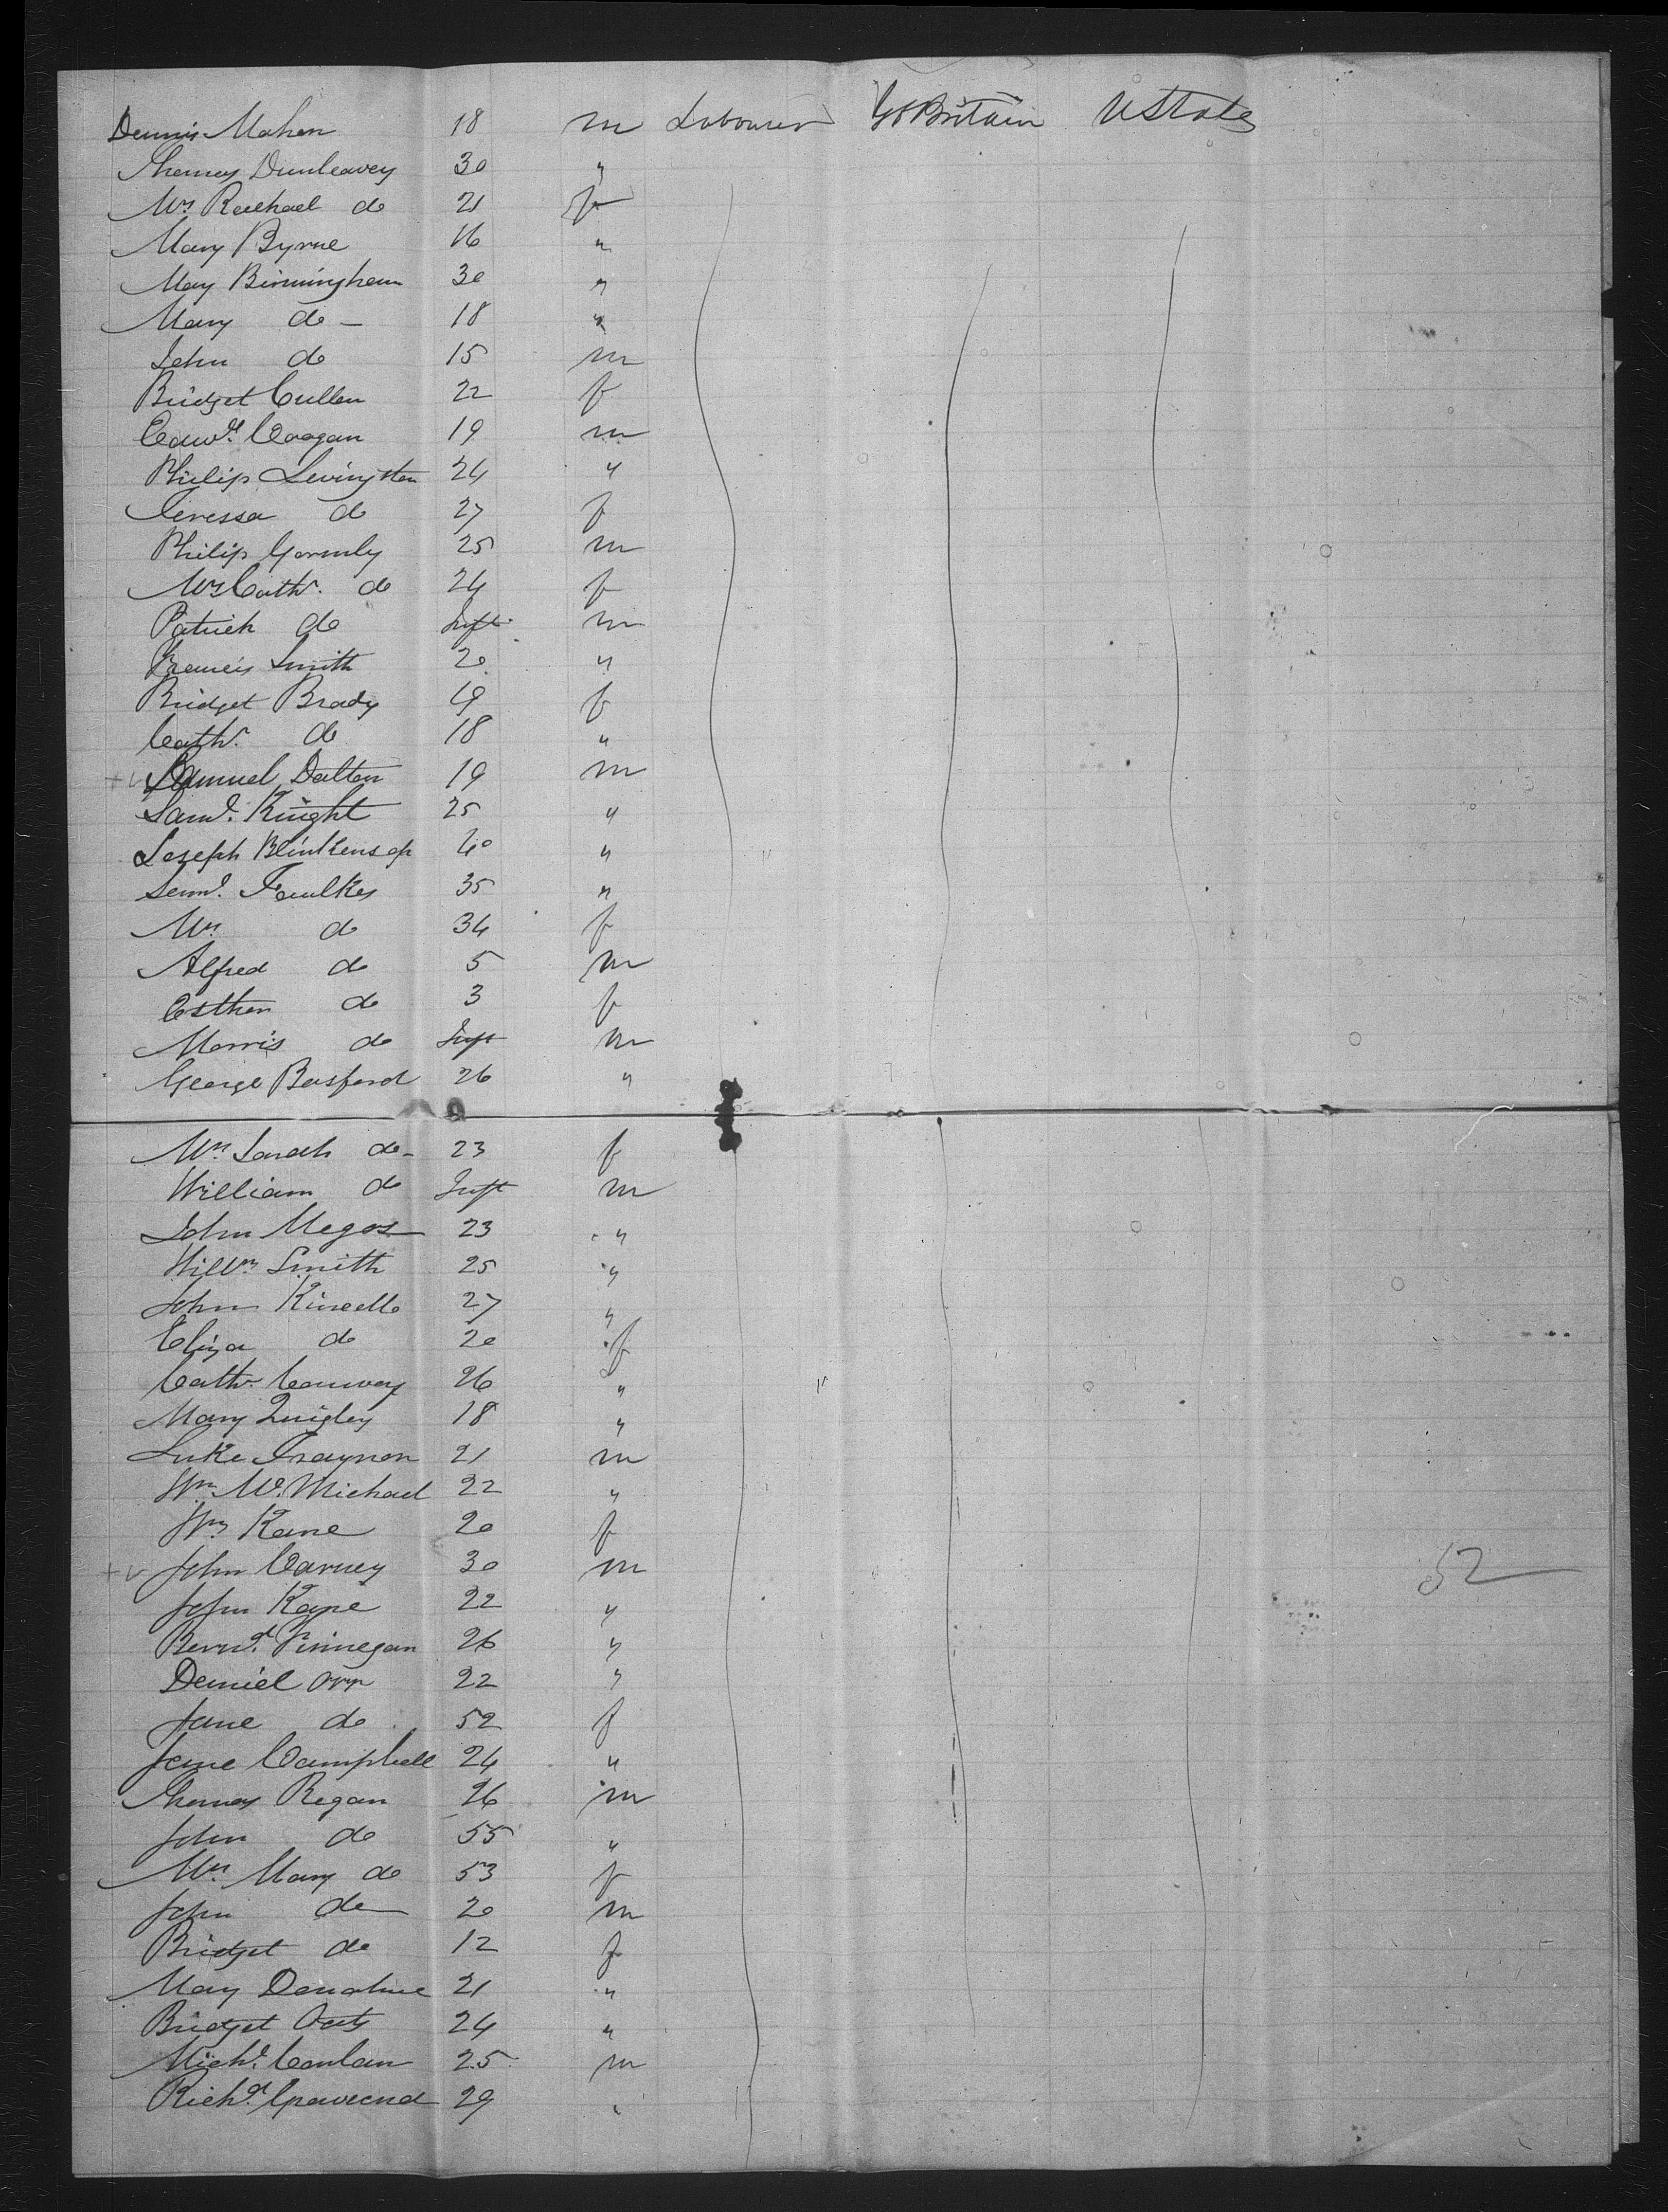 Dennis Mahon 18 m Labourer Gt Britain U States
Thomas Dunleavey 30 "
Mrs Rachael do 21 f
Mary Byrne 16 "
Mary Birmingham 30 "
Mary do - 18 "
John do 15 m
Bridget Cullen 22 f
Edwd. Coogan 19 m
Philip Levingston 24 "
Teressa do 27 f
Philip Gormly 25 m
Mrs Cathr. do 24 f
Patrick do Inft m
Francis Smith 20 "
Bridget Brady 19 f
Cathr. do 18 "
Samuel Dalton 19 m
Saml. Knight 25 "
Joseph Blinkensop 40 "
Saml. Faulkes 35 "
Mrs do 34 f
Alfred do 5 m
Esther do 3 f
Morris do Inft m
George Basford 26 "
Mrs Sarah do - 23 f
William do Inft m
John 23 "
Willm Smith 25 "
John Kinsella 27 "
Eliza do 20 f
Cathr. Conway 26 "
Mary Quigley 18 "
Luke Traynor 21 m
Wm McMichael 22 "
Kane 20 f
John Carney 30 m
John Kane 22 "
52
Bernd. Finnegan 26 "
Daniel Orr 22 "
Jane do 52 f
Jane Campbell 24 "
Thomas Regan 26 m
John do 55 "
Mrs Mary do 53 f
John do 20 m
Bridget do 12 f
Mary Donohue 21 "
Bridget Oats 24 "
Michl. Conlan 25 m
Richd. 29 "